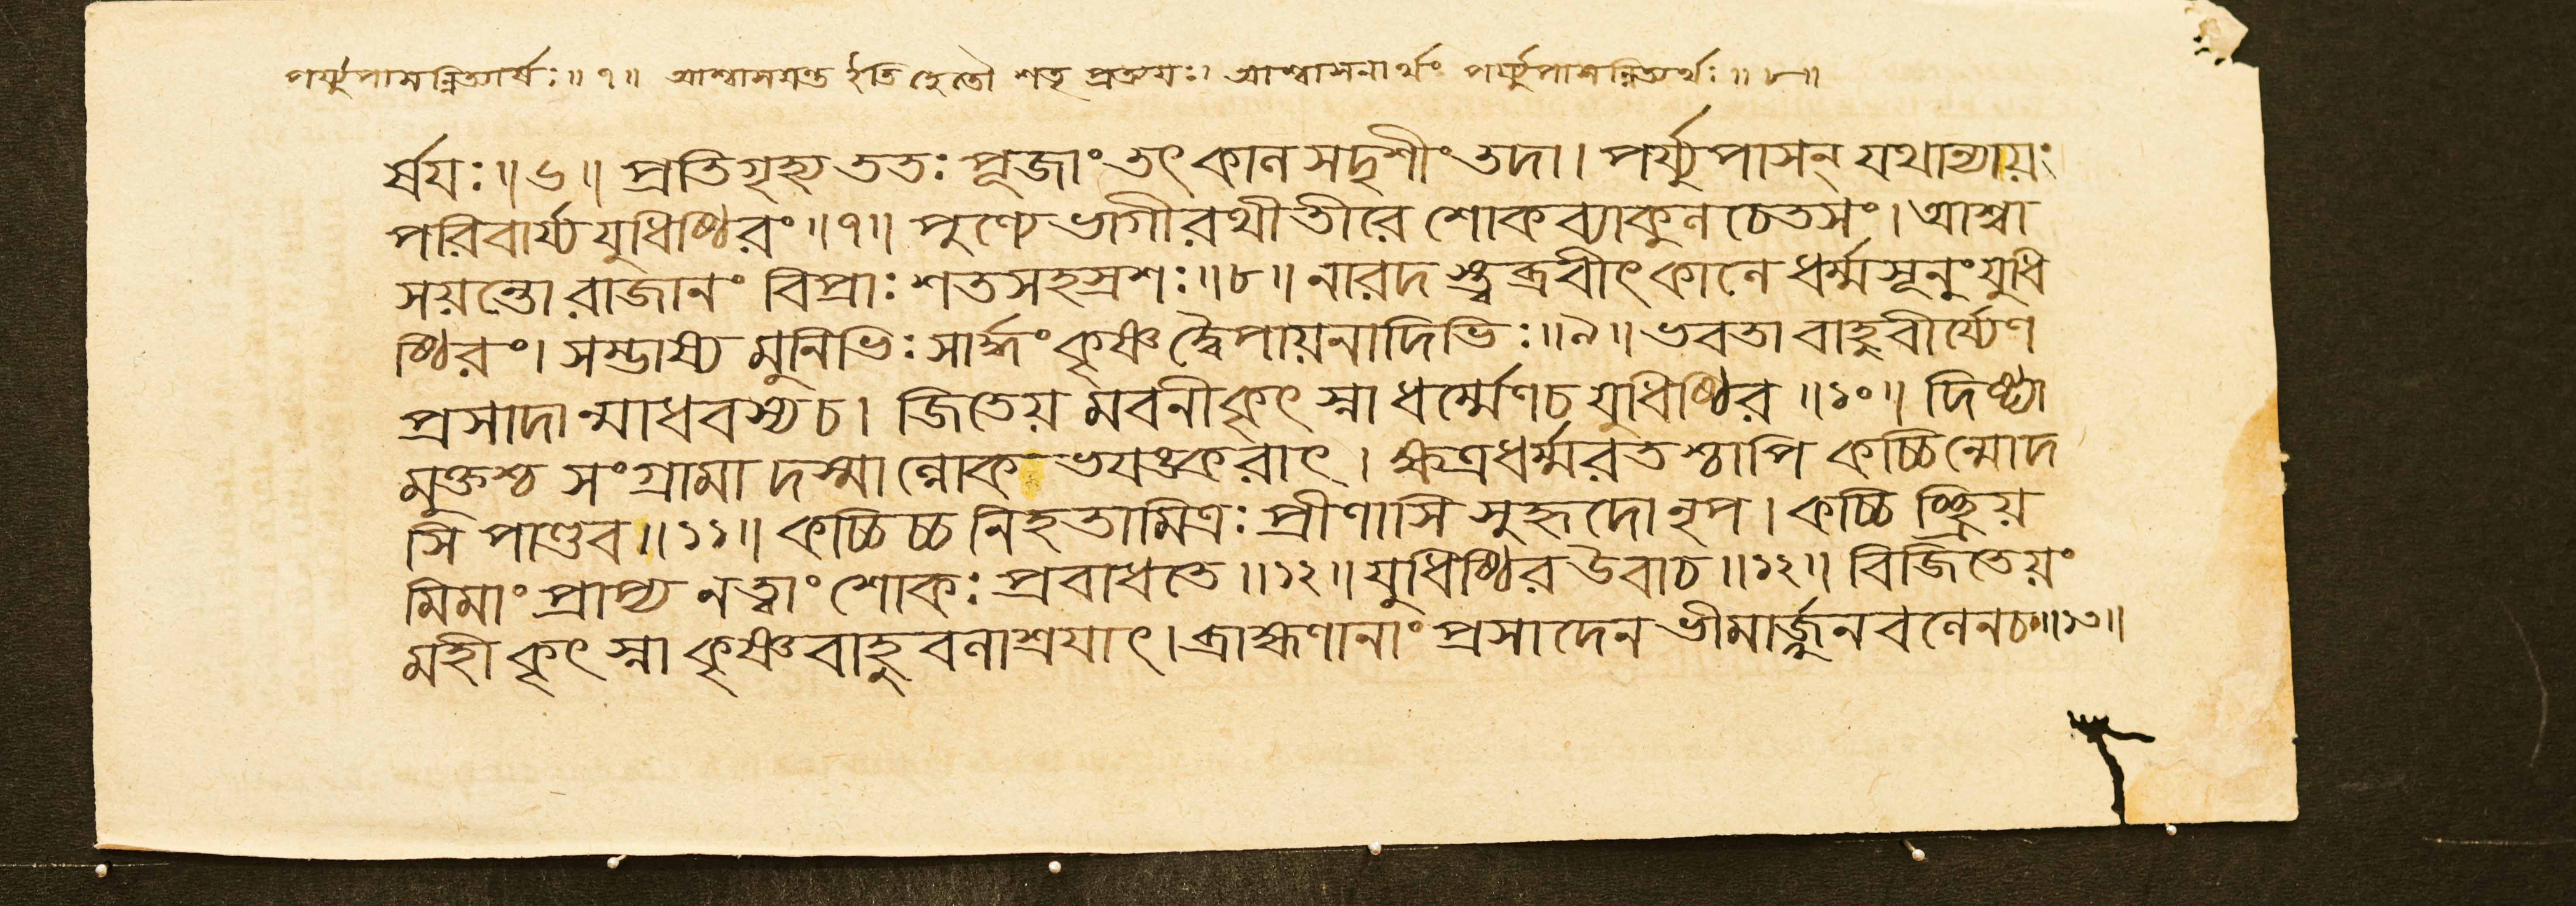 পর্য্যুপাসন্নিত্যর্থঃ॥৭॥ আশ্বাসয়ন্ত ইতি হেতৌ শতৃ প্রত্যয়ঃ। আশ্বাসনার্থং পর্য্যুপাসন্নিত্যর্থঃ॥৮॥
র্ষয়ঃ॥৬॥ প্রতিগৃহ্য ততঃ পূজাং তৎ কাল সদৃশীং তদা। পর্য্যুপাসন্ যথান্যায়ং
পরিবার্য্য যুধিষ্ঠিরং॥৭॥ পুণ্যে ভাগীরথী তীরে শোক ব্যাকুল চেতসং। আশ্বা
সয়ন্তো রাজানং বিপ্রাঃ শতসহস্রশঃ॥৮॥ নারদ স্ত্বব্রবীৎ কালে ধর্ম্মসূনুং যুধি
ষ্ঠিরং। সম্ভাষ্য মুনিভিঃ সার্দ্ধং কৃষ্ণ দ্বৈপায়নাদিভিঃ॥৯॥ ভবতা বাহুবীর্য্যেণ
প্রসাদান্মাধবস্য চ। জিতেয় মবনী কৃৎ স্না ধর্ম্মেণ চ যুধিষ্ঠির॥১০॥ দিষ্ট্যা
মুক্তশ্চ সংগ্রামা দস্মাল্লোক ভয়ঙ্করাৎ। ক্ষত্রধর্ম্মরতশ্চাপি কচ্চিন্মোদ
সি পাণ্ডব॥১১॥ কচ্চিচ্চ নিহতামিত্রঃ প্রীণাসি সুহৃদো নৃপ। কচ্চি চ্ছ্রিয়
মিমাং প্রাপ্য ন ত্বাং শোকঃ প্রবাধতে॥১২॥ যুধিষ্ঠির উবাচ॥১২॥ বিজিতেয়ং
মহী কৃৎ স্না কৃষ্ণ বাহু বলাশ্রয়াৎ। ব্রাহ্মণানাং প্রসাদেন ভীমার্জ্জুন বলেন চ॥১৩॥